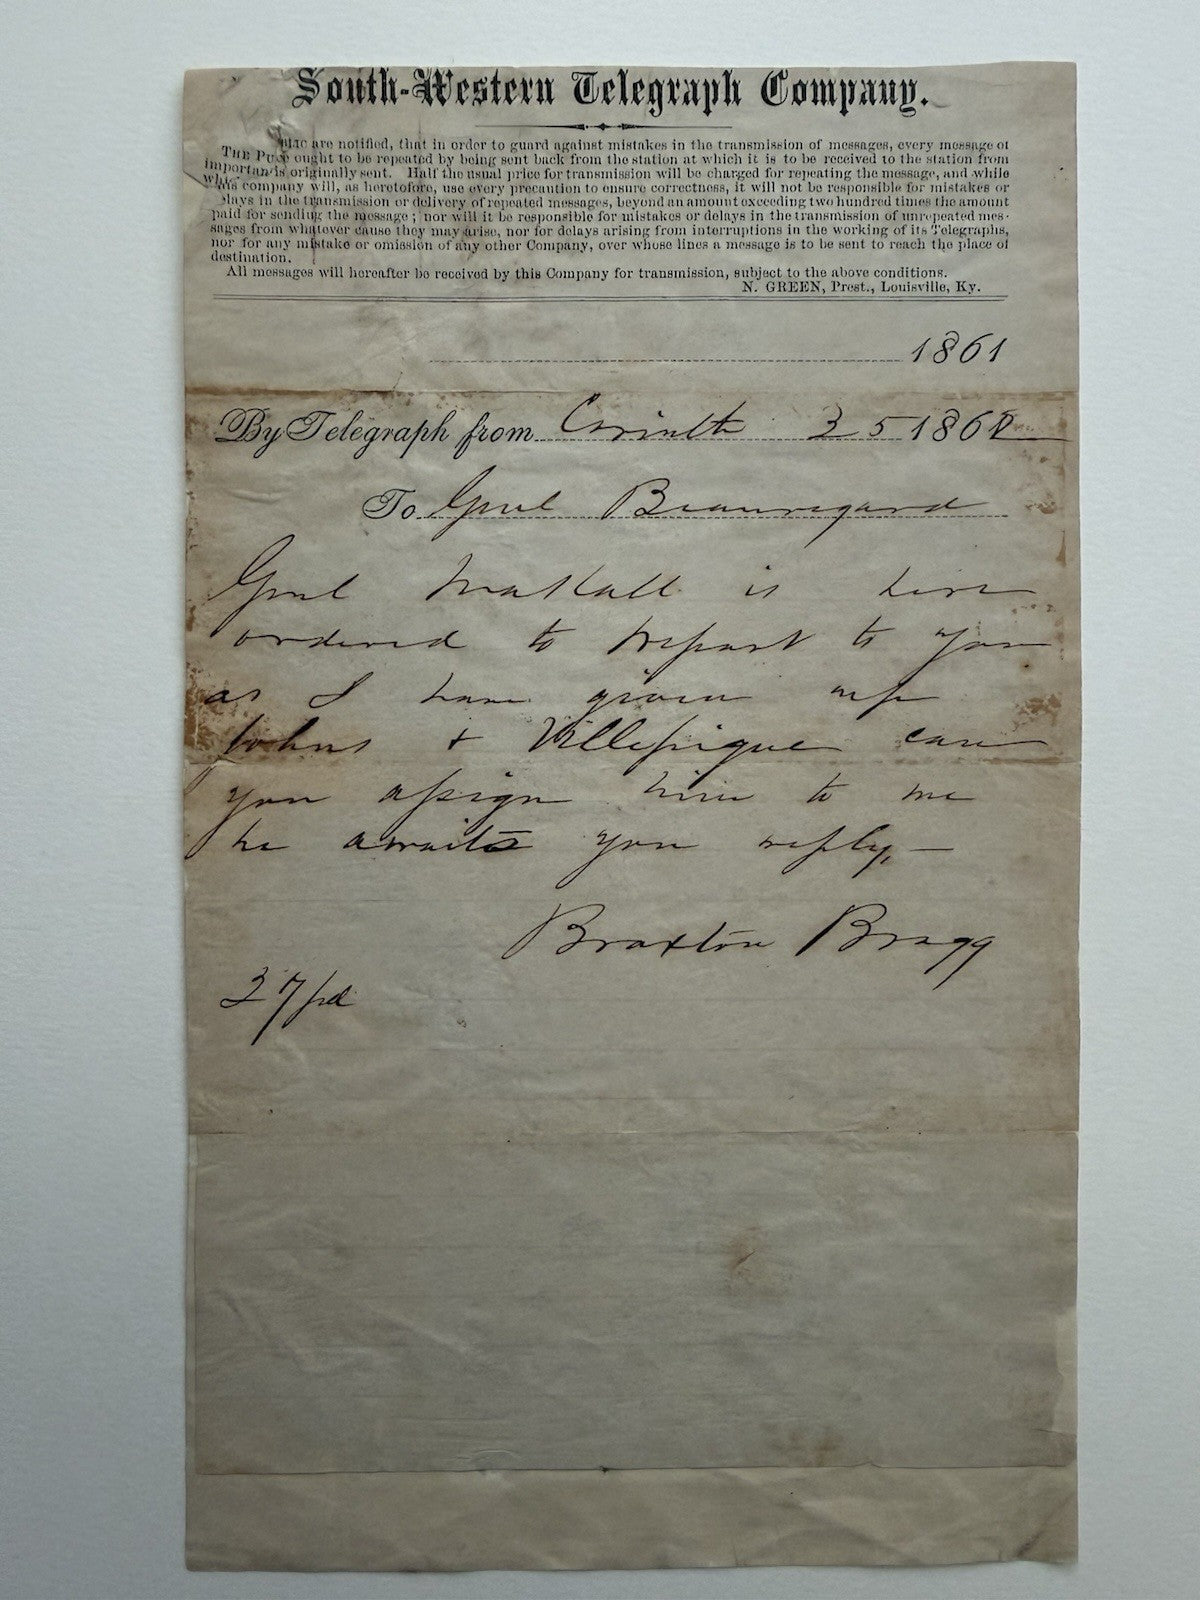 South-Western Telegraph Company.
THE PUBLIC are notified, that in order to guard against mistakes in the transmission of messages, every message of
importan ought to be repeated by being sent back from the station at which it is to be received to the station from
whi is originally sent. Half the usual price for transmission will be charged for repeating the message, and while
this company will, as heretofore, use every precaution to ensure correctness, it will not be responsible for mistakes or
delays in the transmission or delivery of repeated messages, beyond an amount exceeding two hundred times the amount
paid for sending the message; nor will it be responsible for mistakes or delays in the transmission of unrepeated mes-
sages from whatever cause they may arise, nor for delays arising from interruptions in the working of its Telegraphs,
nor for any mistake or omission of any other Company, over whose lines a message is to be sent to reach the place of
destination.
All messages will hereafter be received by this Company for transmission, subject to the above conditions.
N. GREEN, Prest., Louisville, Ky.
1861
By Telegraph from Corinth 3 5 1862
To Genl Beauregard
Genl Mackall is here
ordered to report to you
as I have given up
Johns & Villepigue can
you assign him to me
he awaits your reply, —
Braxton Bragg
27 pd